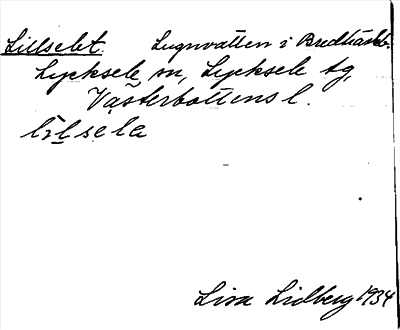 Lillselet. Lugnvatten i Bredträskb.
Lycksele sn, Lycksele tg,
Västerbottens l.
lìlsela
Lisa Lidberg 1934